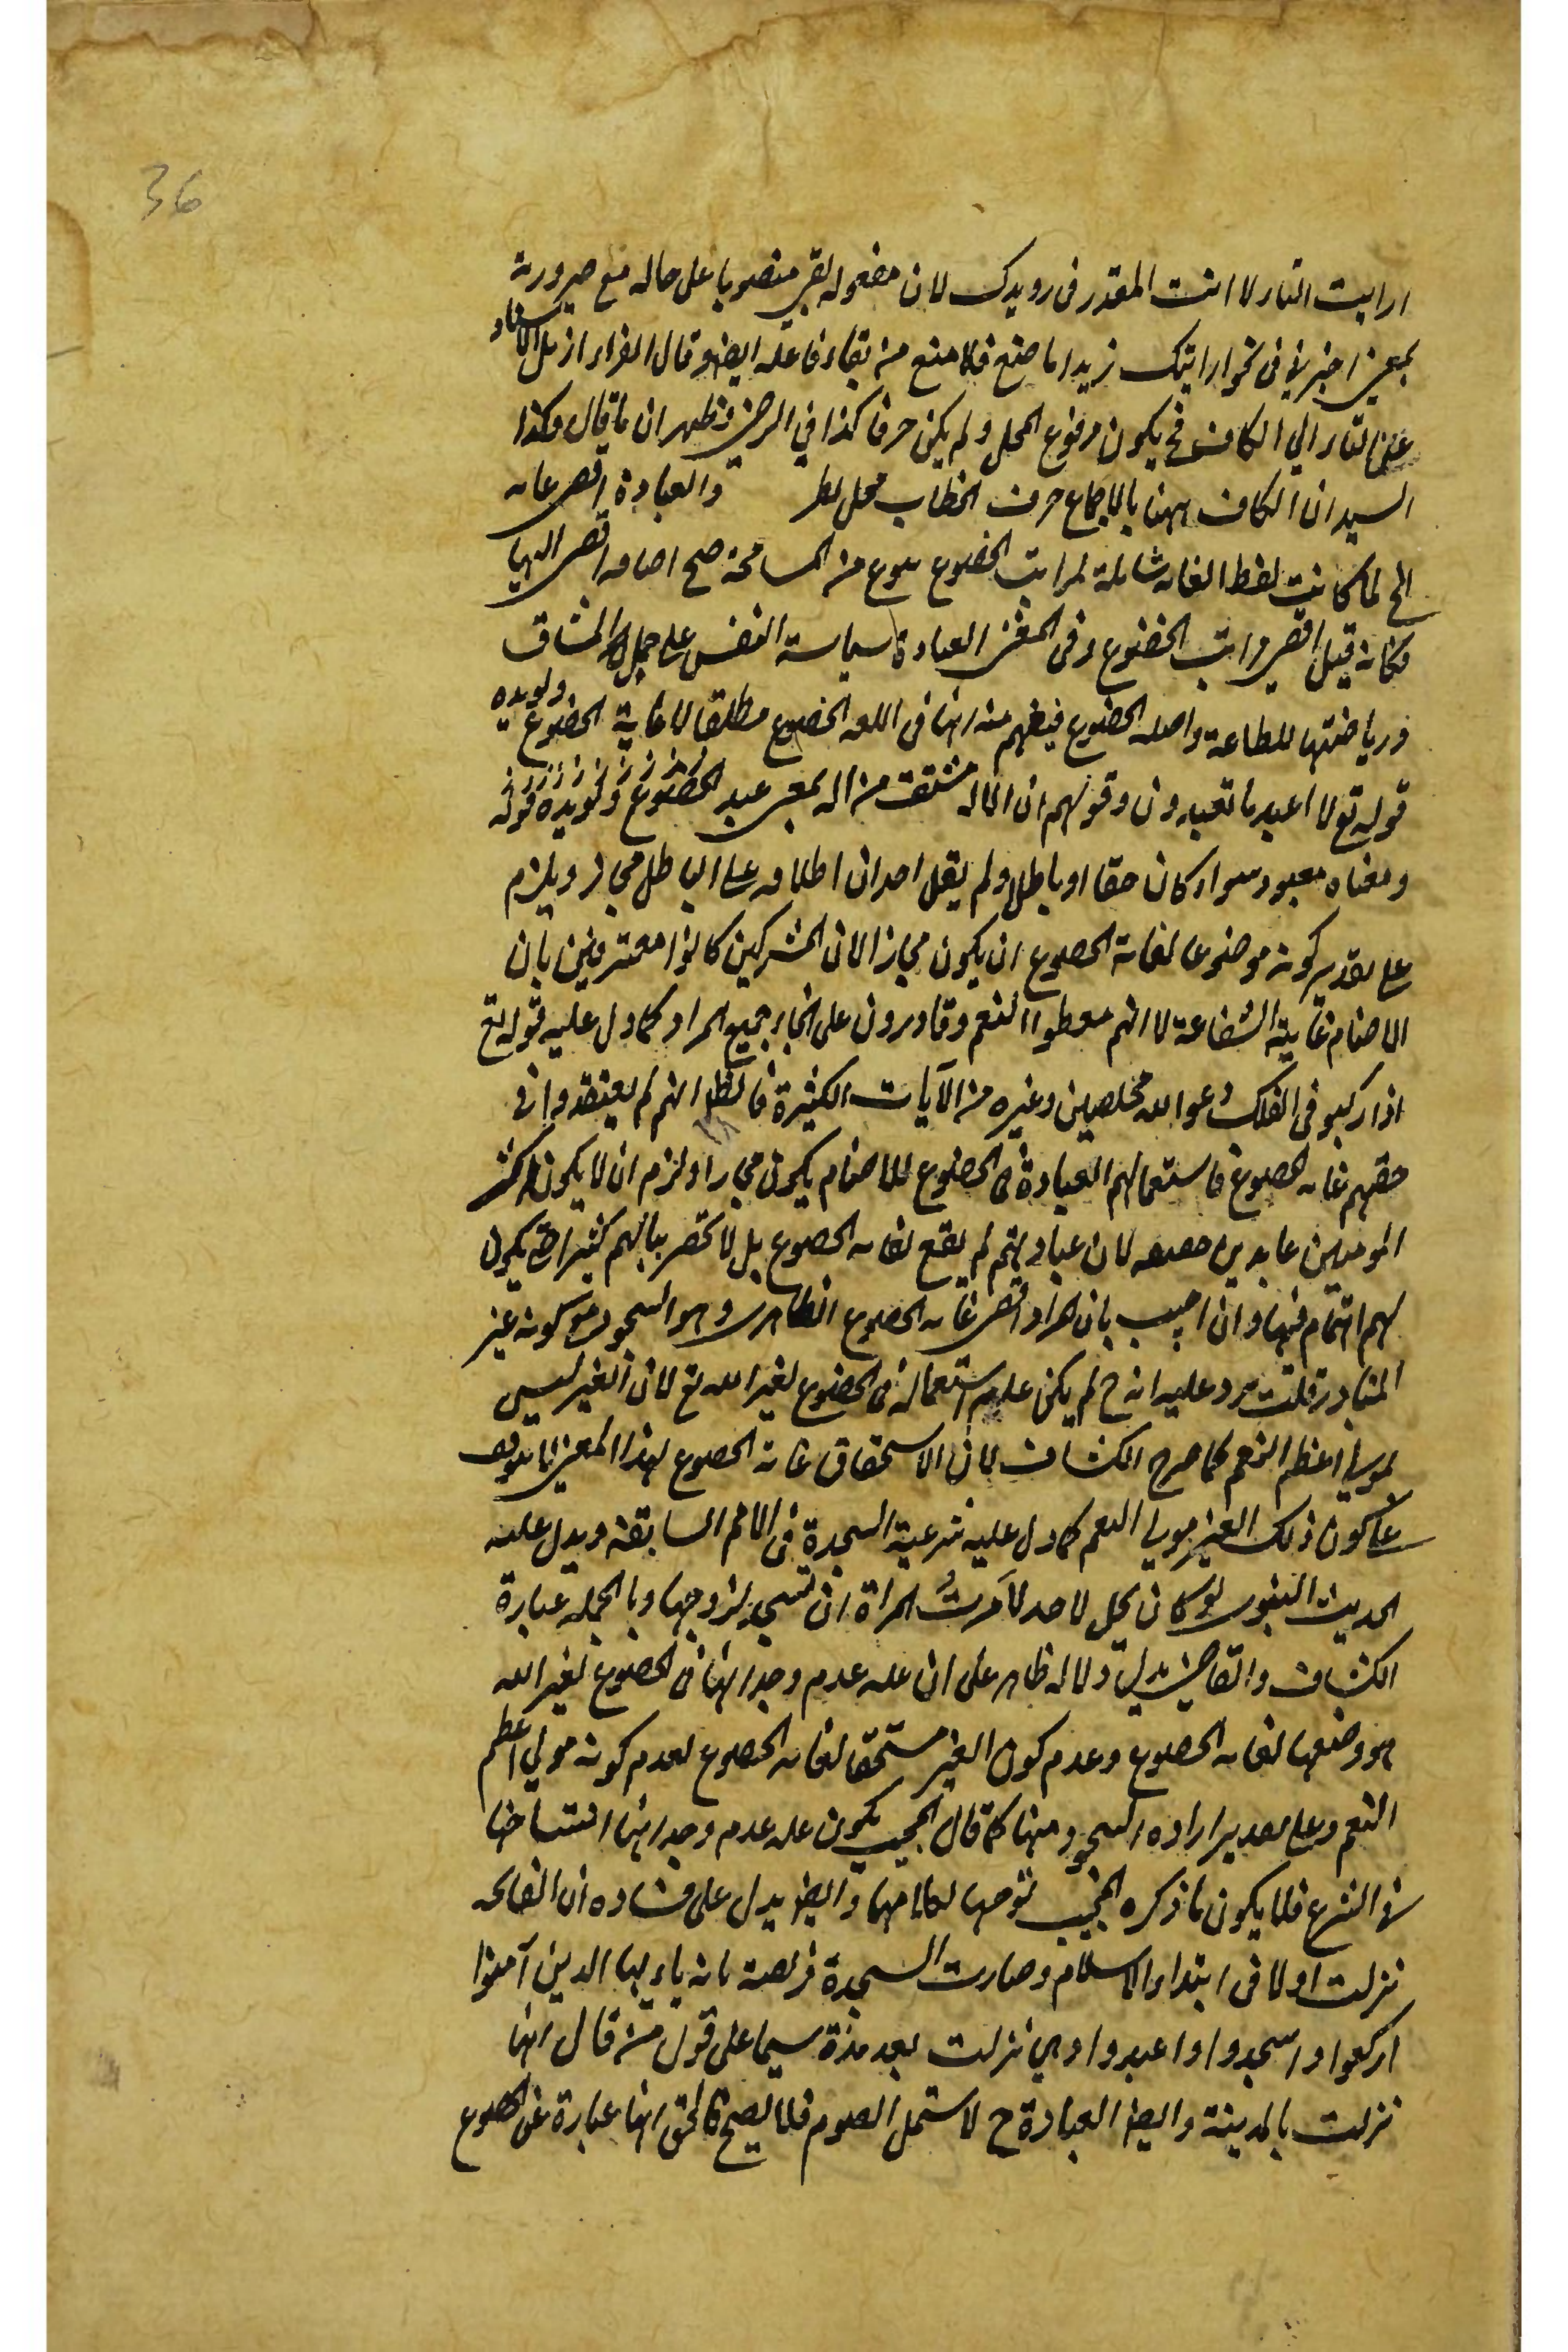 36
ارايت التاء لا انت المقدر فى رويدك لان مفعوله بقى منصوبا على حاله مع صيرورته
بمعنى اخبرنى فى نحو ارايتك زيدا ما صنع فلا منع من بقاء فاعله ايضا وقال الفراء ازيل الاسناد
عن التاء الى الكاف فح يكون مرفوع المحل ولم يكن حرفا كذا فى الرضى فظهر ان ما قال وكذا
السيد ان الكاف ههنا بالاجماع حرف الخطاب محل نظر والعبادة اقصى غاية
الخ لما كانت لفظ الغاية شاملة لمراتب الخضوع بنوع من المسامحة صح اضافة اقصى اليها
فكانه قيل اقصى مراتب الخضوع وفى المغنى العبادة سياسة النفس على حمل المشاق
ورياضتها للطاعة واصله الخضوع فيفهم منه انها فى اللغة الخضوع مطلقا لا غاية الخضوع ويويده
قوله تع لا اعبد ما تعبدون وقولهم ان الاله مشتق من اله بمعنى عبد الخضوع ويويده قوله
ومعناه معبود سواء كان حقا او باطلا ولم يقل احد ان اطلاقه على الباطل مجاز ويلزم
على تقدير كونه موضوعا لغاية الخضوع ان يكون مجازا لان المشركين كانوا معترفين بان
الاصنام غاية الشفاعة لا انهم معطوا النعم وقادرون على انجاء جميع المراد كما دل عليه قوله تع
اذا ركبو فى الفلك دعوا الله مخلصين وغيره من الآيات الكثيرة فالظ انهم لم يعتقدوا فى
حقهم غاية الخضوع فاستعمالهم العبادة فى الخضوع للاصنام يكون مجازا ولزم ان لا يكون اكثر
المومنين عابدين حقيقة لان عبادتهم لم يقع لغاية الخضوع بل لا تحضر ببالهم كثيرا حتى يكون
لهم اهتمام فيها وان اجيب بان المراد اقصى غاية الخضوع الظاهرى وهو السجود مع كونه غير
المتبادر قلت يرد عليه انه ح لم يكن علة استعماله فى الخضوع لغير الله تع لان الغير ليس
بمولى اعظم النعم كما صرح الكشاف لان الاستحقاق غاية الخضوع بهذا المعنى لا يتوقف
على كون ذلك الغير مولى النعم كما دل عليه شرعية السجدة فى الامم السابقة ويدل عليه
الحديث النبوى لو كان يحل لاحد لامرتُ المراة ان تسجد لزوجها وبالجملة عبارة
الكشاف والقاضى يدل دلالة ظاهر على ان علة عدم وجدانها فى الخضوع لغير الله
هو وضعها لغاية الخضوع وعدم كون الغير مستحقا لغاية الخضوع لعدم كونه مولى اعظم
النعم وعلى تقدير ارادة السجود منها كما قال المجيب يكون علة عدم وجدانها انتساخها
فى الشرع فلا يكون ما ذكره المجيب توجيها لكلامهما وايضا يدل على فساده ان الفاتحة
نزلت اولا فى ابتداء الاسلام وصارت السجدة فريضة بانه يا ايها الذين آمنوا
اركعوا واسجدوا واعبدوا وهى نزلت بعد مدة سيما على قول من قال انها
نزلت بالمدينة وايضا العبادة ح لا تشمل الصوم فلا يصح فالحق انها عبارة عن الخضوع